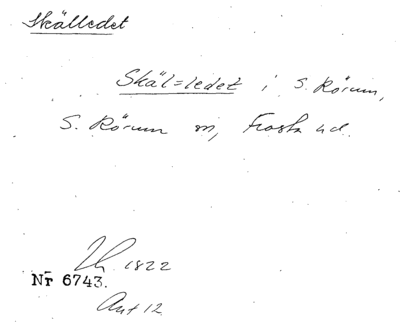 Skälledet
Skäl=ledet i S. Rörum,
S. Rörum sn, Frosta hd.
1822
Nr 6743.
Ant 12